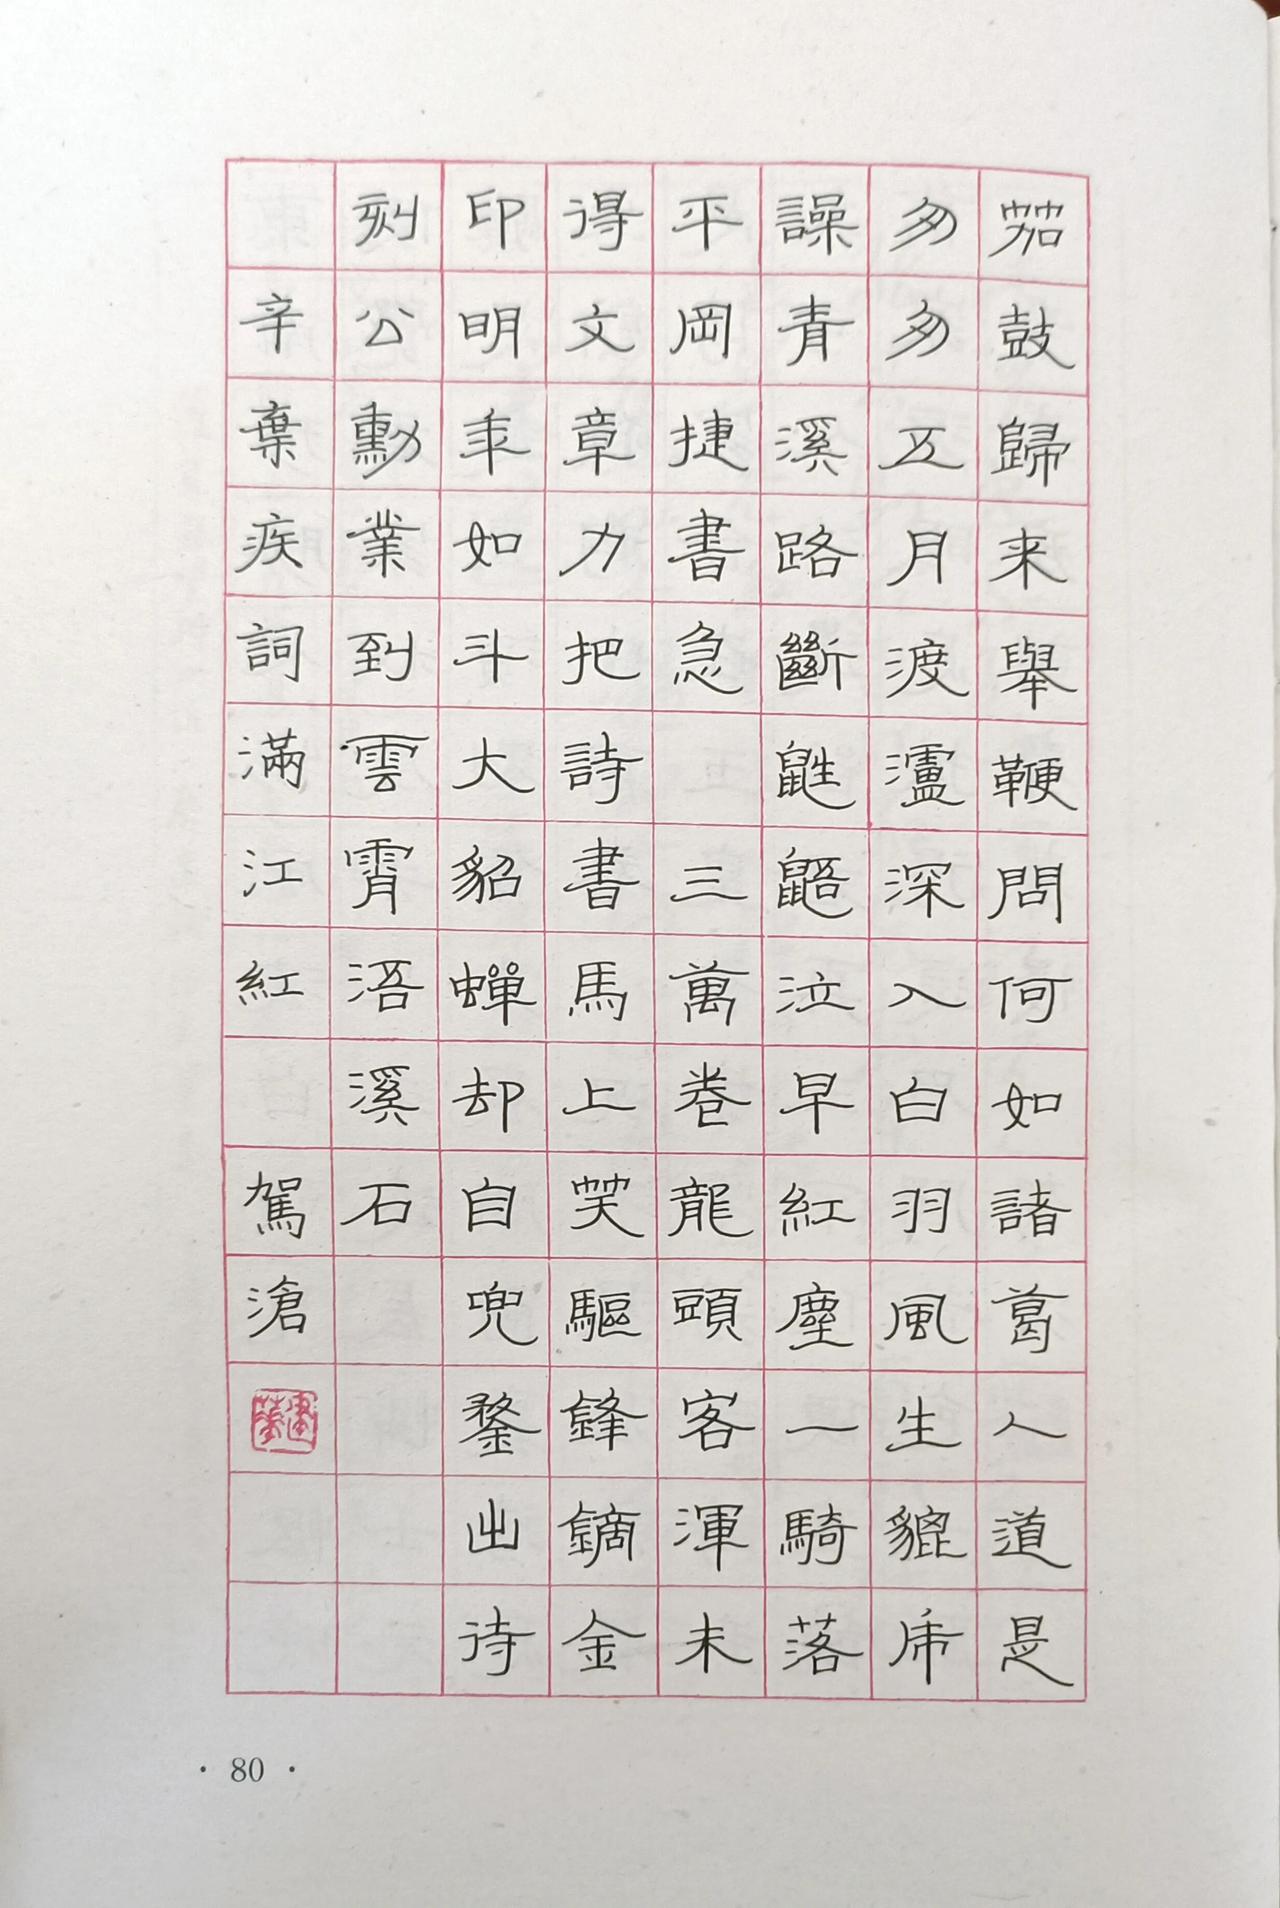 笳鼓歸来舉鞭問何如諸葛人道是
匆匆五月渡瀘深入白羽風生貔虎
譟青溪路斷鼪鼯泣早紅塵一騎落
平岡捷書急 三萬卷龍頭客渾未
得文章力把詩書馬上笑驅鋒鏑金
印明年如斗大貂蟬却自兜鍪出待
刻公勳業到雲霄浯溪石
辛棄疾詞滿江紅 駕滄
· 80 ·